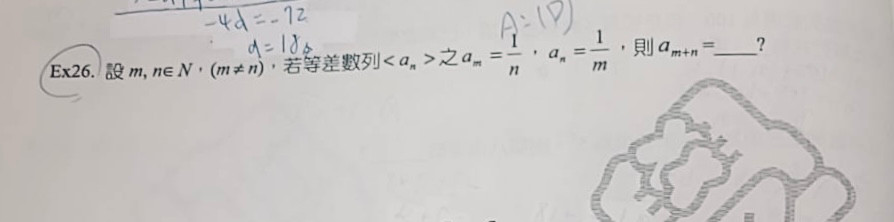 -4d=-72
d=18
A=(P)
Ex26. 設 m, n∈N，(m≠n)，若等差數列<aₙ>之 aₘ = 1/n，aₙ = 1/m，則 aₘ₊ₙ =____?